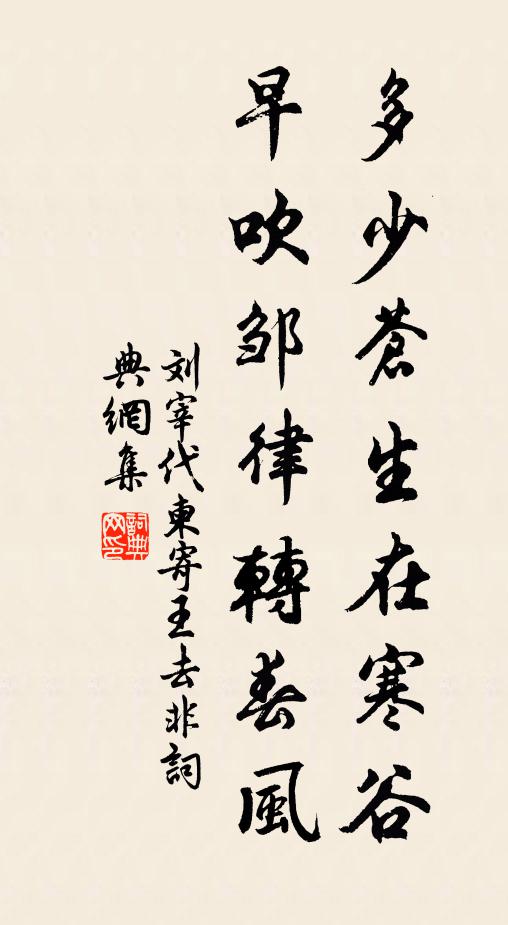 多少蒼生在寒谷
早吹邹律轉春風
刘宰代東寄王去非詞
典網集
詞典网印